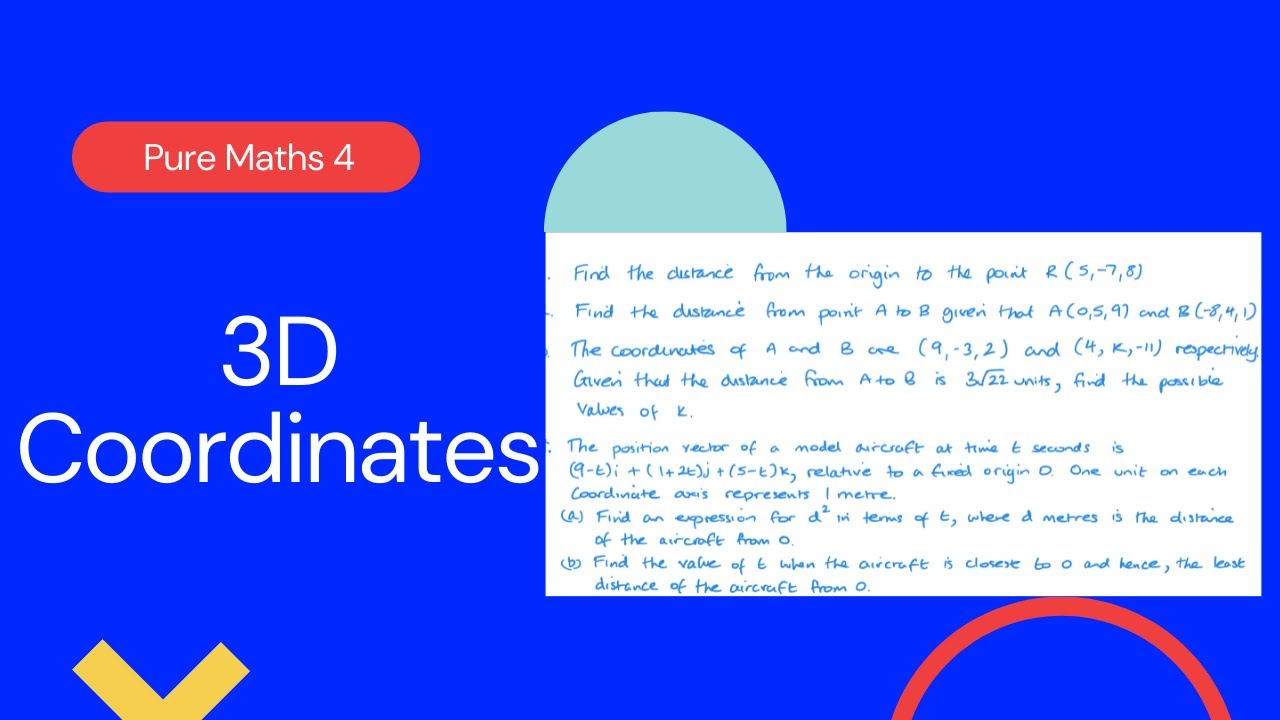 Pure Maths 4
3D
Coordinates
. Find the distance from the origin to the point R (5,-7,8)
. Find the distance from point A to B given that A(0,5,9) and B(-8,4,1)
The coordinates of A and B are (9,-3,2) and (4, k,-11) respectively.
Given that the distance from A to B is 3√22 units, find the possible
values of k.
. The position vector of a model aircraft at time t seconds is
(9-t)i + (1+2t)j + (5-t)k, relative to a fixed origin O. One unit on each
coordinate axis represents 1 metre.
(a) Find an expression for d² in terms of t, where d metres is the distance
of the aircraft from O.
(b) Find the value of t when the aircraft is closest to O and hence, the least
distance of the aircraft from O.